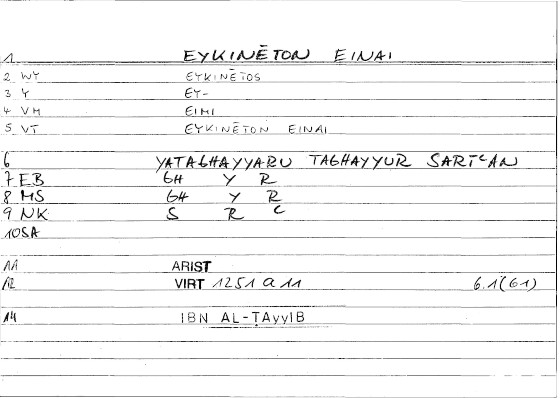 1 EYKINĒTON EINAI
2 WY EYKINĒTOS
3 Y EY-
4 VM EIMI
5 VT EYKINĒTON EINAI
6 YATAGHAYYARU TAGHAYYUR SARĪᶜAN
7 EB GH Y R
8 MS GH Y R
9 NK S R ᶜ
10 SA
11 ARIST
12 VIRT 1251 a 11 6.1(61)
14 IBN AL-ṬAyyIB